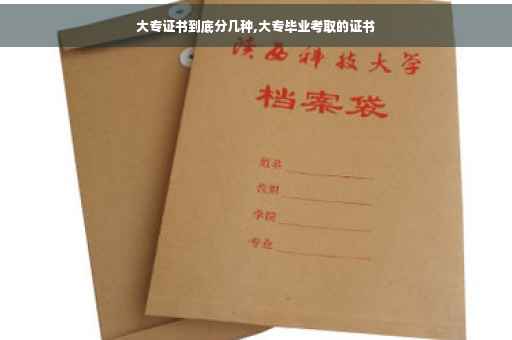 大专证书到底分几种,大专毕业考取的证书
陕西科技大学
档案袋
姓名
性别
学院
专业